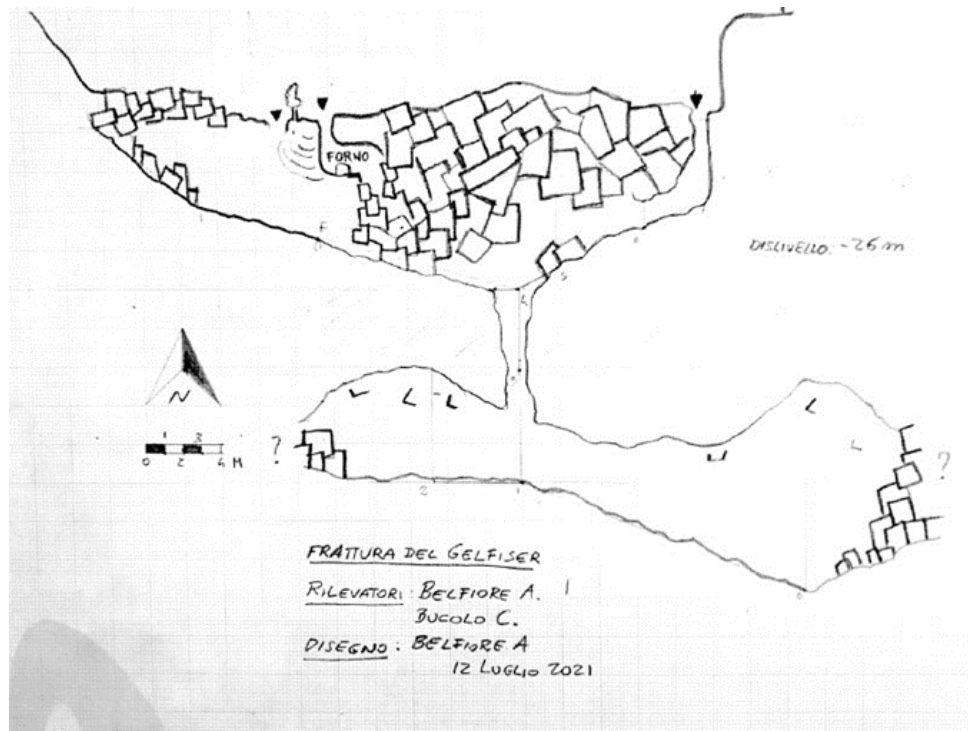 FORNO
DISLIVELLO: -26 m
N
1 3
0 2 4 M
?
?
2
1
FRATTURA DEL GELFISER
RILEVATORI: BELFIORE A.
BUCOLO C.
DISEGNO: BELFIORE A
12 LUGLIO 2021